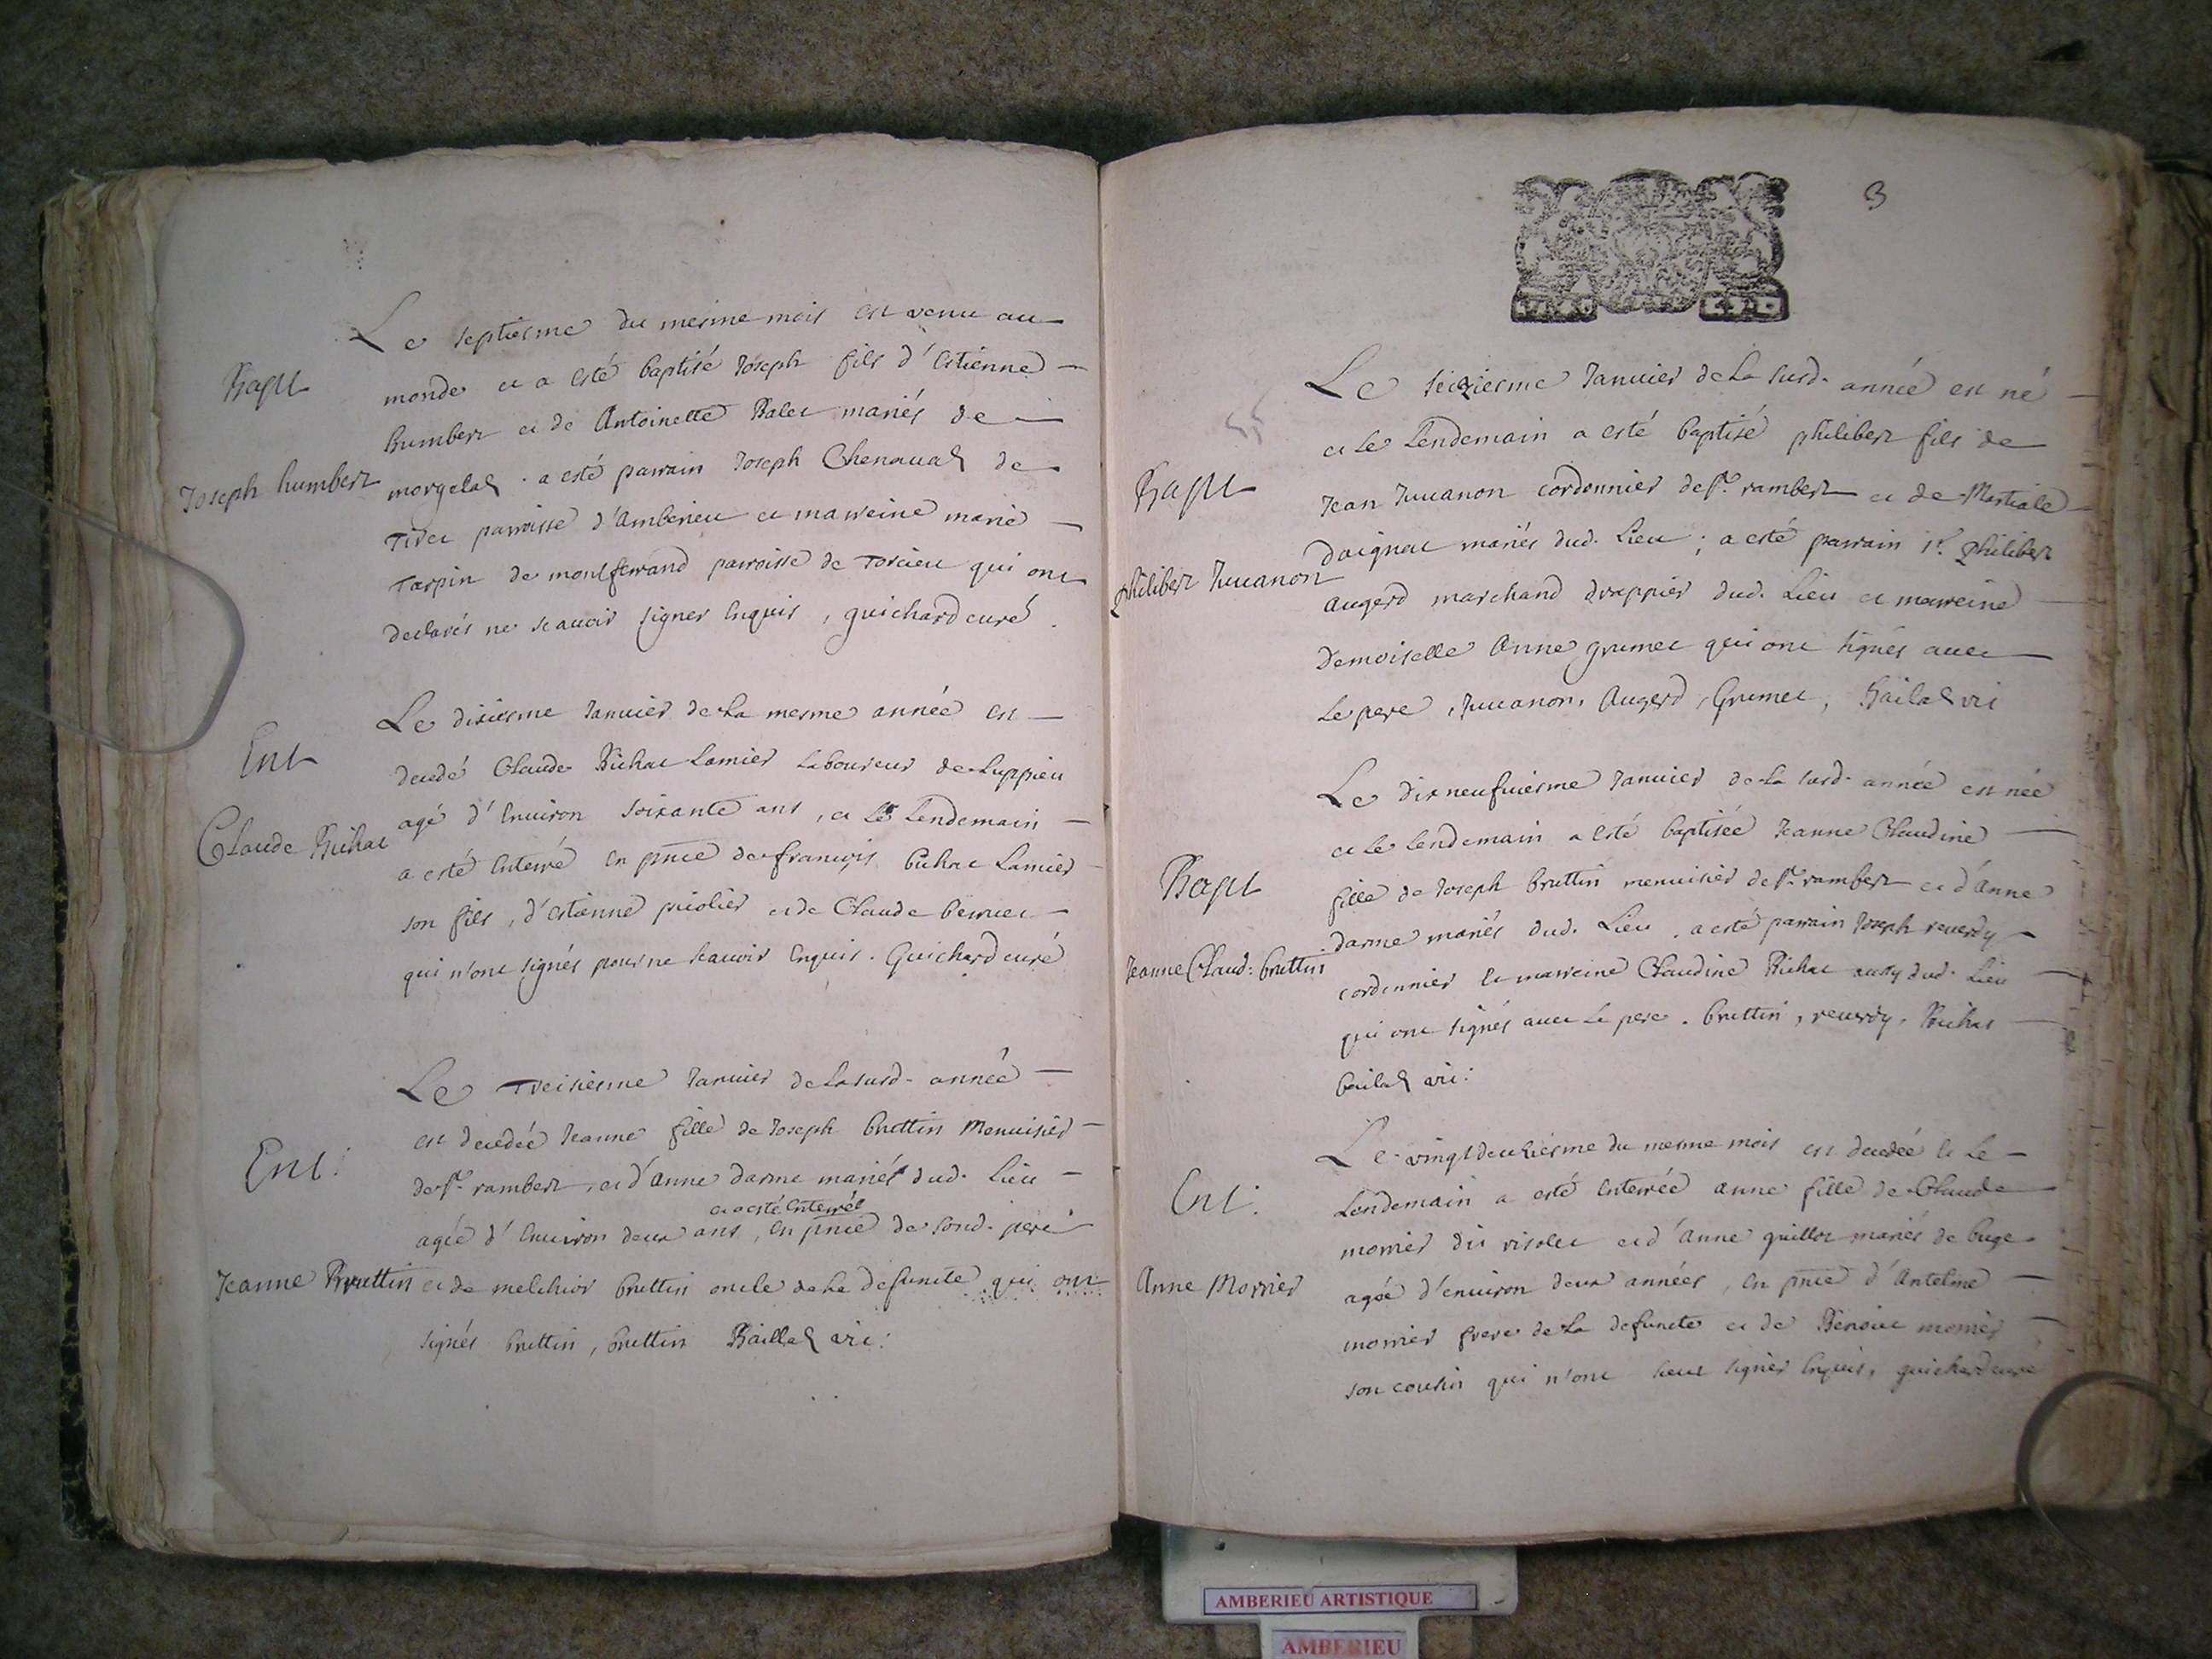 Le septiesme du mesme mois est venu au
monde et a esté baptisé Joseph fils d'Estienne
Bapt
humbert et de Antoinette Balet mariés de
Joseph humbert
morgelas . a esté parrain Joseph Chenaual de
Tiret parroisse d'Amberieu et marreine marie
Tarpin de montferrand parroisse de Torcieu qui ont
declarés ne scauoir signer Enquis , guichard curé .
Le dixiesme Januier de la mesme année est
Ent
decedé Claude Bichat Lamier laboureur de Luppieu
agé d'Enuiron soixante ans , et le Lendemain
Claude Bichat
a esté Enterré en pnce de francois bichat Lamier
son fils , d'estienne et de Claude
qui n'ont signés pour ne scauoir Enquis . Guichard curé
Le Treisiesme Januier de la susd. année
est decedée Jeanne fille de Joseph bruttin Menuisier
Ent :
de st. rambert , et d'anne darme mariés dud. Lieu
et a esté Enterrée
agée d'Enuiron deux ans , en pnce de sond. pere
Jeanne Bruttin
et de melchior bruttin oncle de la defuncte qui ont
signés bruttin , bruttin Baillad vic :
3
Le seiziesme Januier de la susd. année est né
et le Lendemain a esté baptisé philibert fils de
Bapt
Jean Juuanon cordonnier de st. rambert et de Martiale
doignat mariés dud. Lieu ; a esté parrain sr. philibert
philibert Juuanon
augerd marchand drappier dud. Lieu et marreine
Demoiselle Anne grumet qui ont signés auec
Le pere , Juuanon , Augerd , Grumet , Bailad vic
Le dix neufuiesme Januier de la susd. année est née
et le lendemain a esté baptisée Jeanne Claudine
Bapt
fille de Joseph bruttin menuisier de st. rambert et d'anne
darme mariés dud. Lieu . a esté parrain Joseph reuerdy
Jeanne Claud: bruttin
cordonnier et marreine Claudine Bichat aussy dud. Lieu
qui ont signés auec Le pere . bruttin , reuerdy , Bichat
bailad vic :
Le vingt deuxiesme du mesme mois est decedée et Le
Lendemain a esté Enterrée anne fille de Claude
Ent :
morrier dit risolet et d'anne guillot mariés de buge
Anne Morrier
agée d'enuiron deux années , en pnce d'Antelme
morrier frere de la defuncte et de Benoict morrier
son cousin qui n'ont sceut signer Enquis , guichard curé
AMBERIEU ARTISTIQUE
AMBERIEU